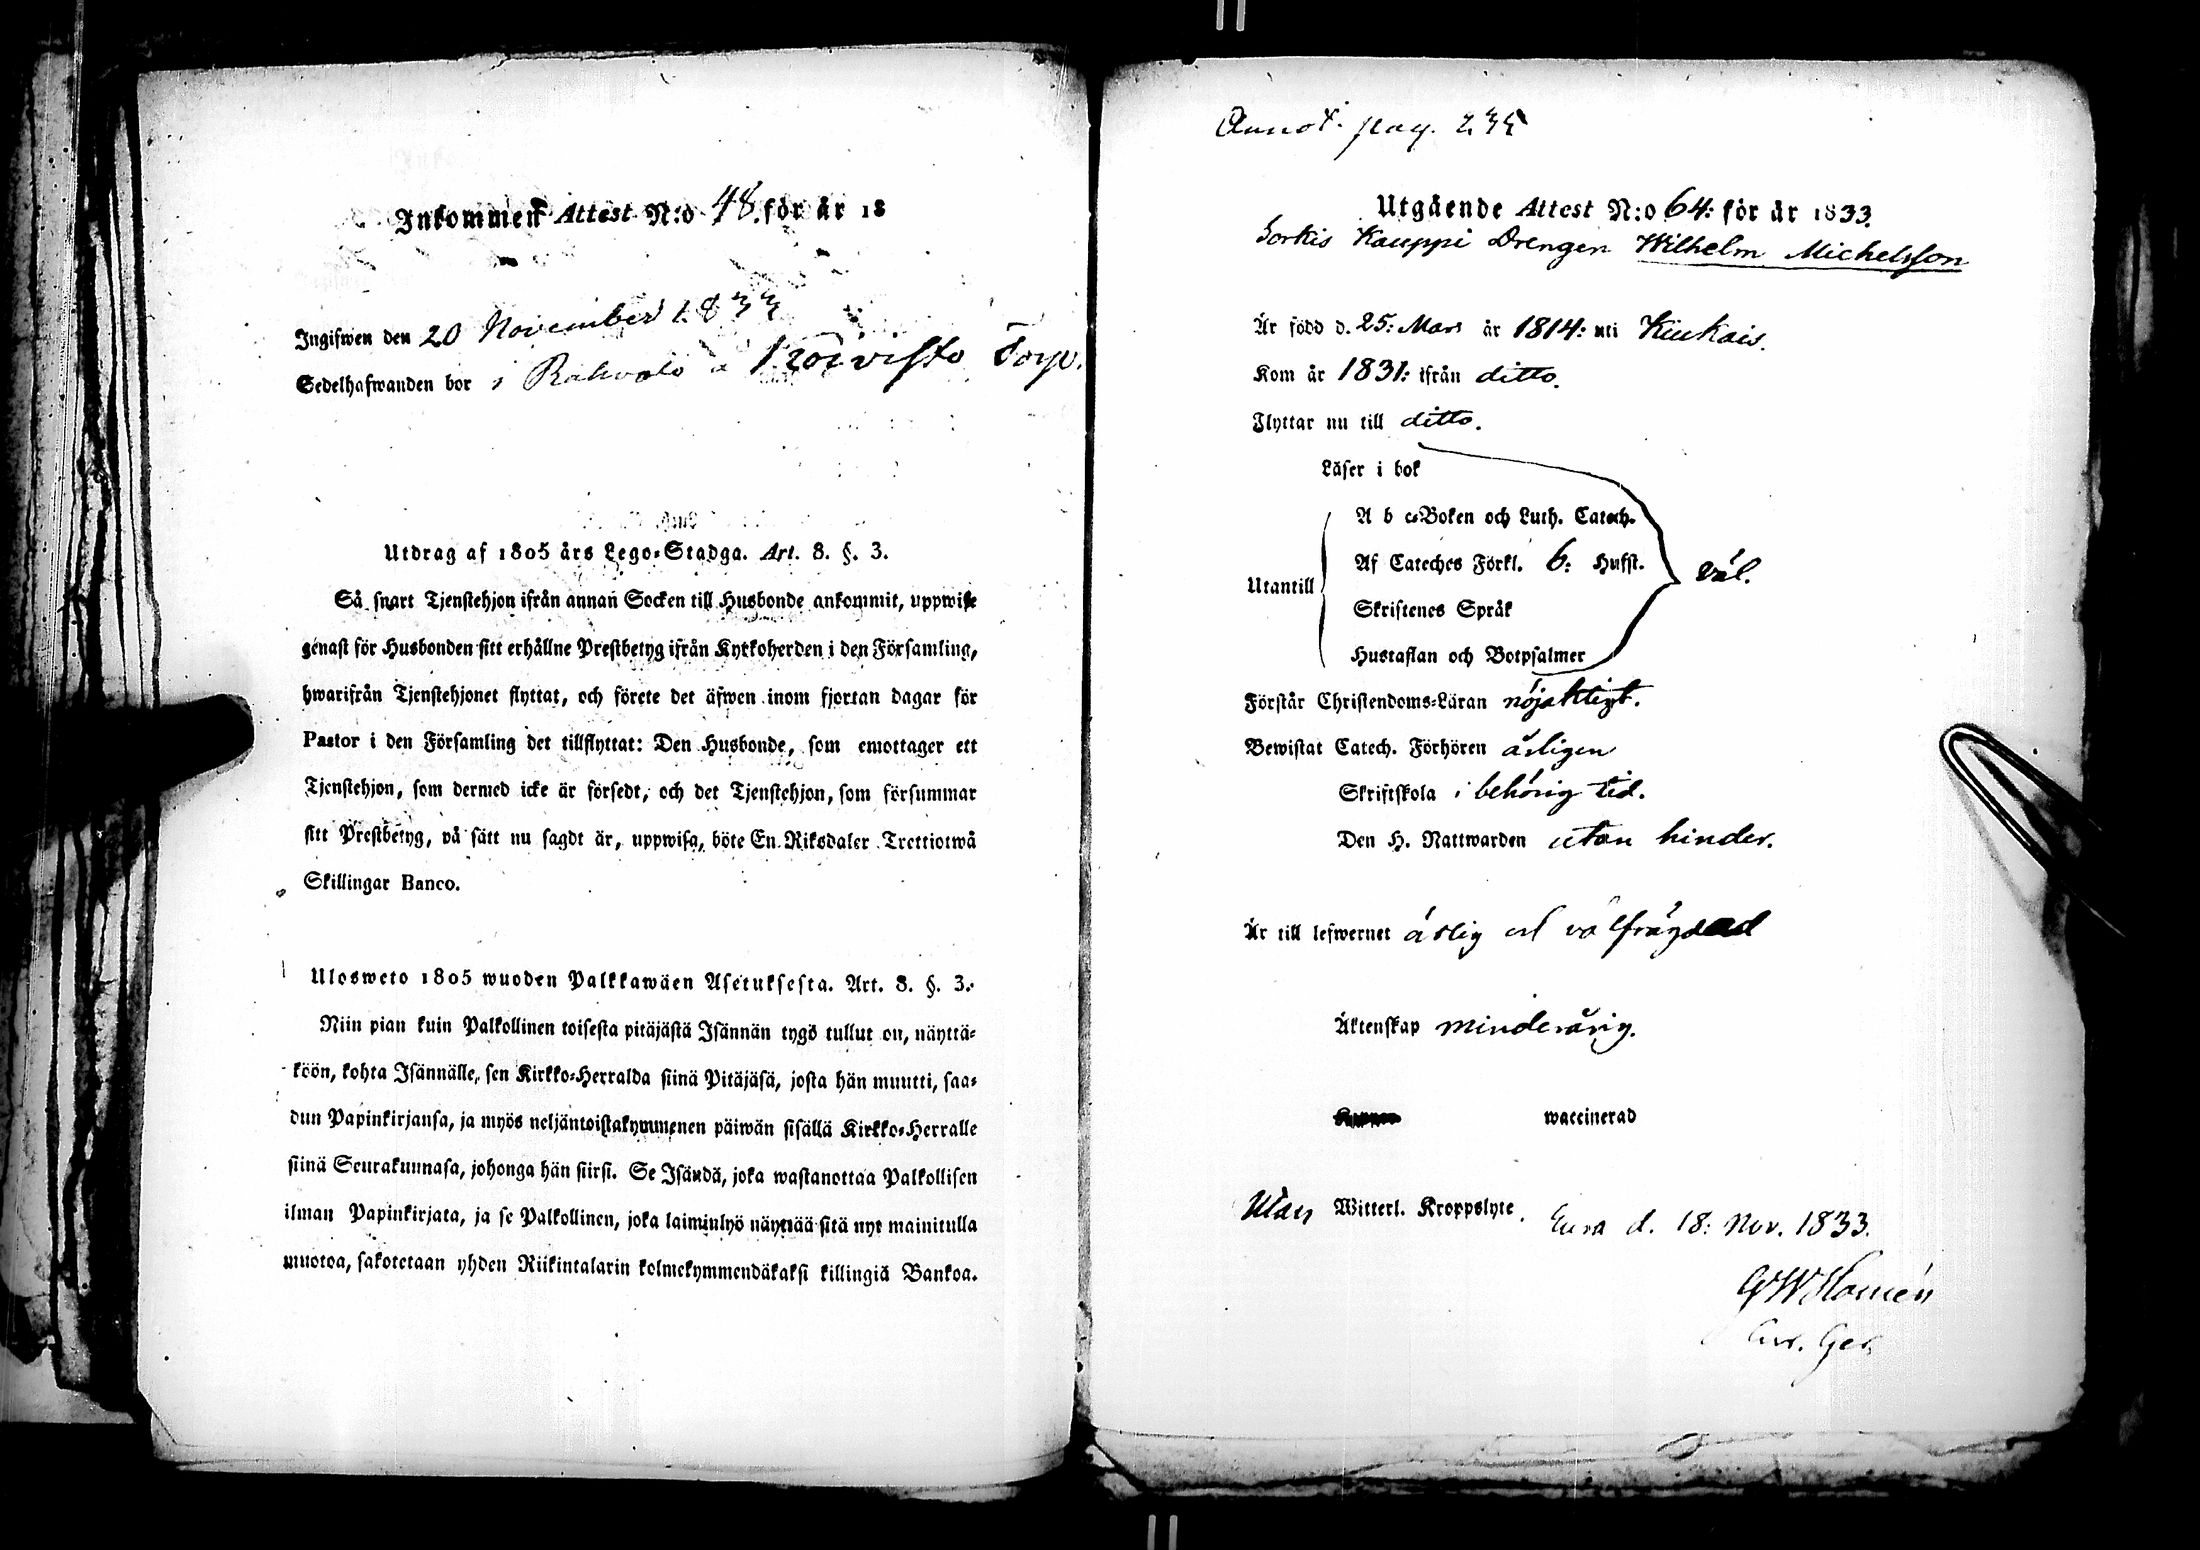 Inkommen Attest N:o 48. för år 18
Ingifwen den 20 November 1833
Sedelhafwanden bor i Rahvola a Koivisto Torp.
Utdrag af 1805 års Lego-Stadga. Art. 8. §. 3.
Så snart Tjenstehjon ifrån annan Socken till Husbonde ankommit, uppwise
genast för Husbonden sitt erhållne Prestbetyg ifrån Kyrkoherden i den Församling,
hwarifrån Tjenstehjonet flyttat, och förete det äfwen inom fjortan dagar för
Pastor i den Församling det tillflyttat: Den Husbonde, som emottager ett
Tjenstehjon, som dermed icke är försedt, och det Tjenstehjon, som försummar
sitt Prestbetyg, på sätt nu sagdt är, uppwisa, böte En Riksdaler Trettiotwå
Skillingar Banco.
Ulosweto 1805 wuoden Palkkawäen Asetuksesta. Art. 8. §. 3.
Niin pian kuin Palkollinen toisesta pitäjästä Isännän tygö tullut on, näyttä-
köön, kohta Isännälle, sen Kirkko-Herralda siinä Pitäjäsä, josta hän muutti, saa-
dun Papinkirjansa, ja myös neljäntoistakymmenen päiwän sisällä Kirkko-Herralle
siinä Seurakunnasa, johonga hän siirsi. Se Isändä, joka wastanottaa Palkollisen
ilman Papinkirjata, ja se Palkollinen, joka laiminlyö näyttää sitä nyt mainitulla
muotoa, sakotetaan yhden Riikintalarin kolmekymmendäkaksi killingiä Bankoa.
Annot. pag. 235
Utgående Attest N:o 64: för år 1833.
Sorkis Kauppi Drengen Wilhelm Michelsson
Är född d. 25: Mars år 1814: uti Kiukais.
Kom år 1831: ifrån ditto.
Flyttar nu till ditto.
Läser i bok
A b c-Boken och Luth. Catech.
Af Cateches Förkl. 6: Hufst.
Utantill
väl.
Skriftenes Språk
Hustaflan och Botpsalmer
Förstår Christendoms-Läran nöjaktigt.
Bewistat Catech. Förhören årligen
Skriftskola i behörig tid.
Den H. Nattwarden utan hinder.
Är till lefwernet ärlig och välfrägdad
Äktenskap minderårig.
waccinerad
Utan Witterl. Kroppslyte. Eura d. 18: Nov. 1833.